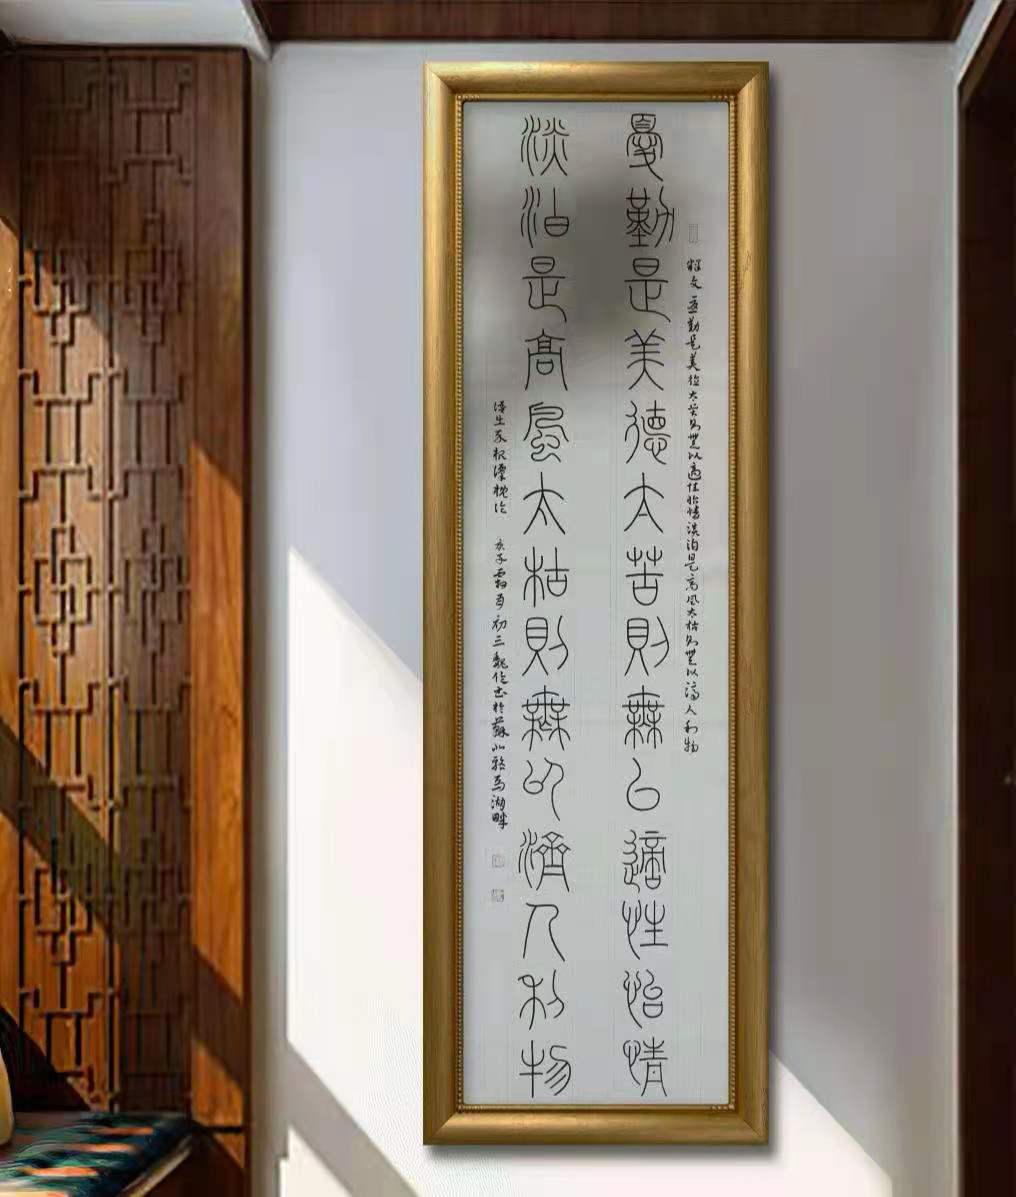 釋文 憂勤是美德太苦則無以適性怡情淡泊是高風太枯則無以濟人利物
憂勤是美德太苦則無以適性怡情
淡泊是高風太枯則無以濟人利物
菜根譚概論 庚子霜月初三魏書於蘇北駱馬湖畔